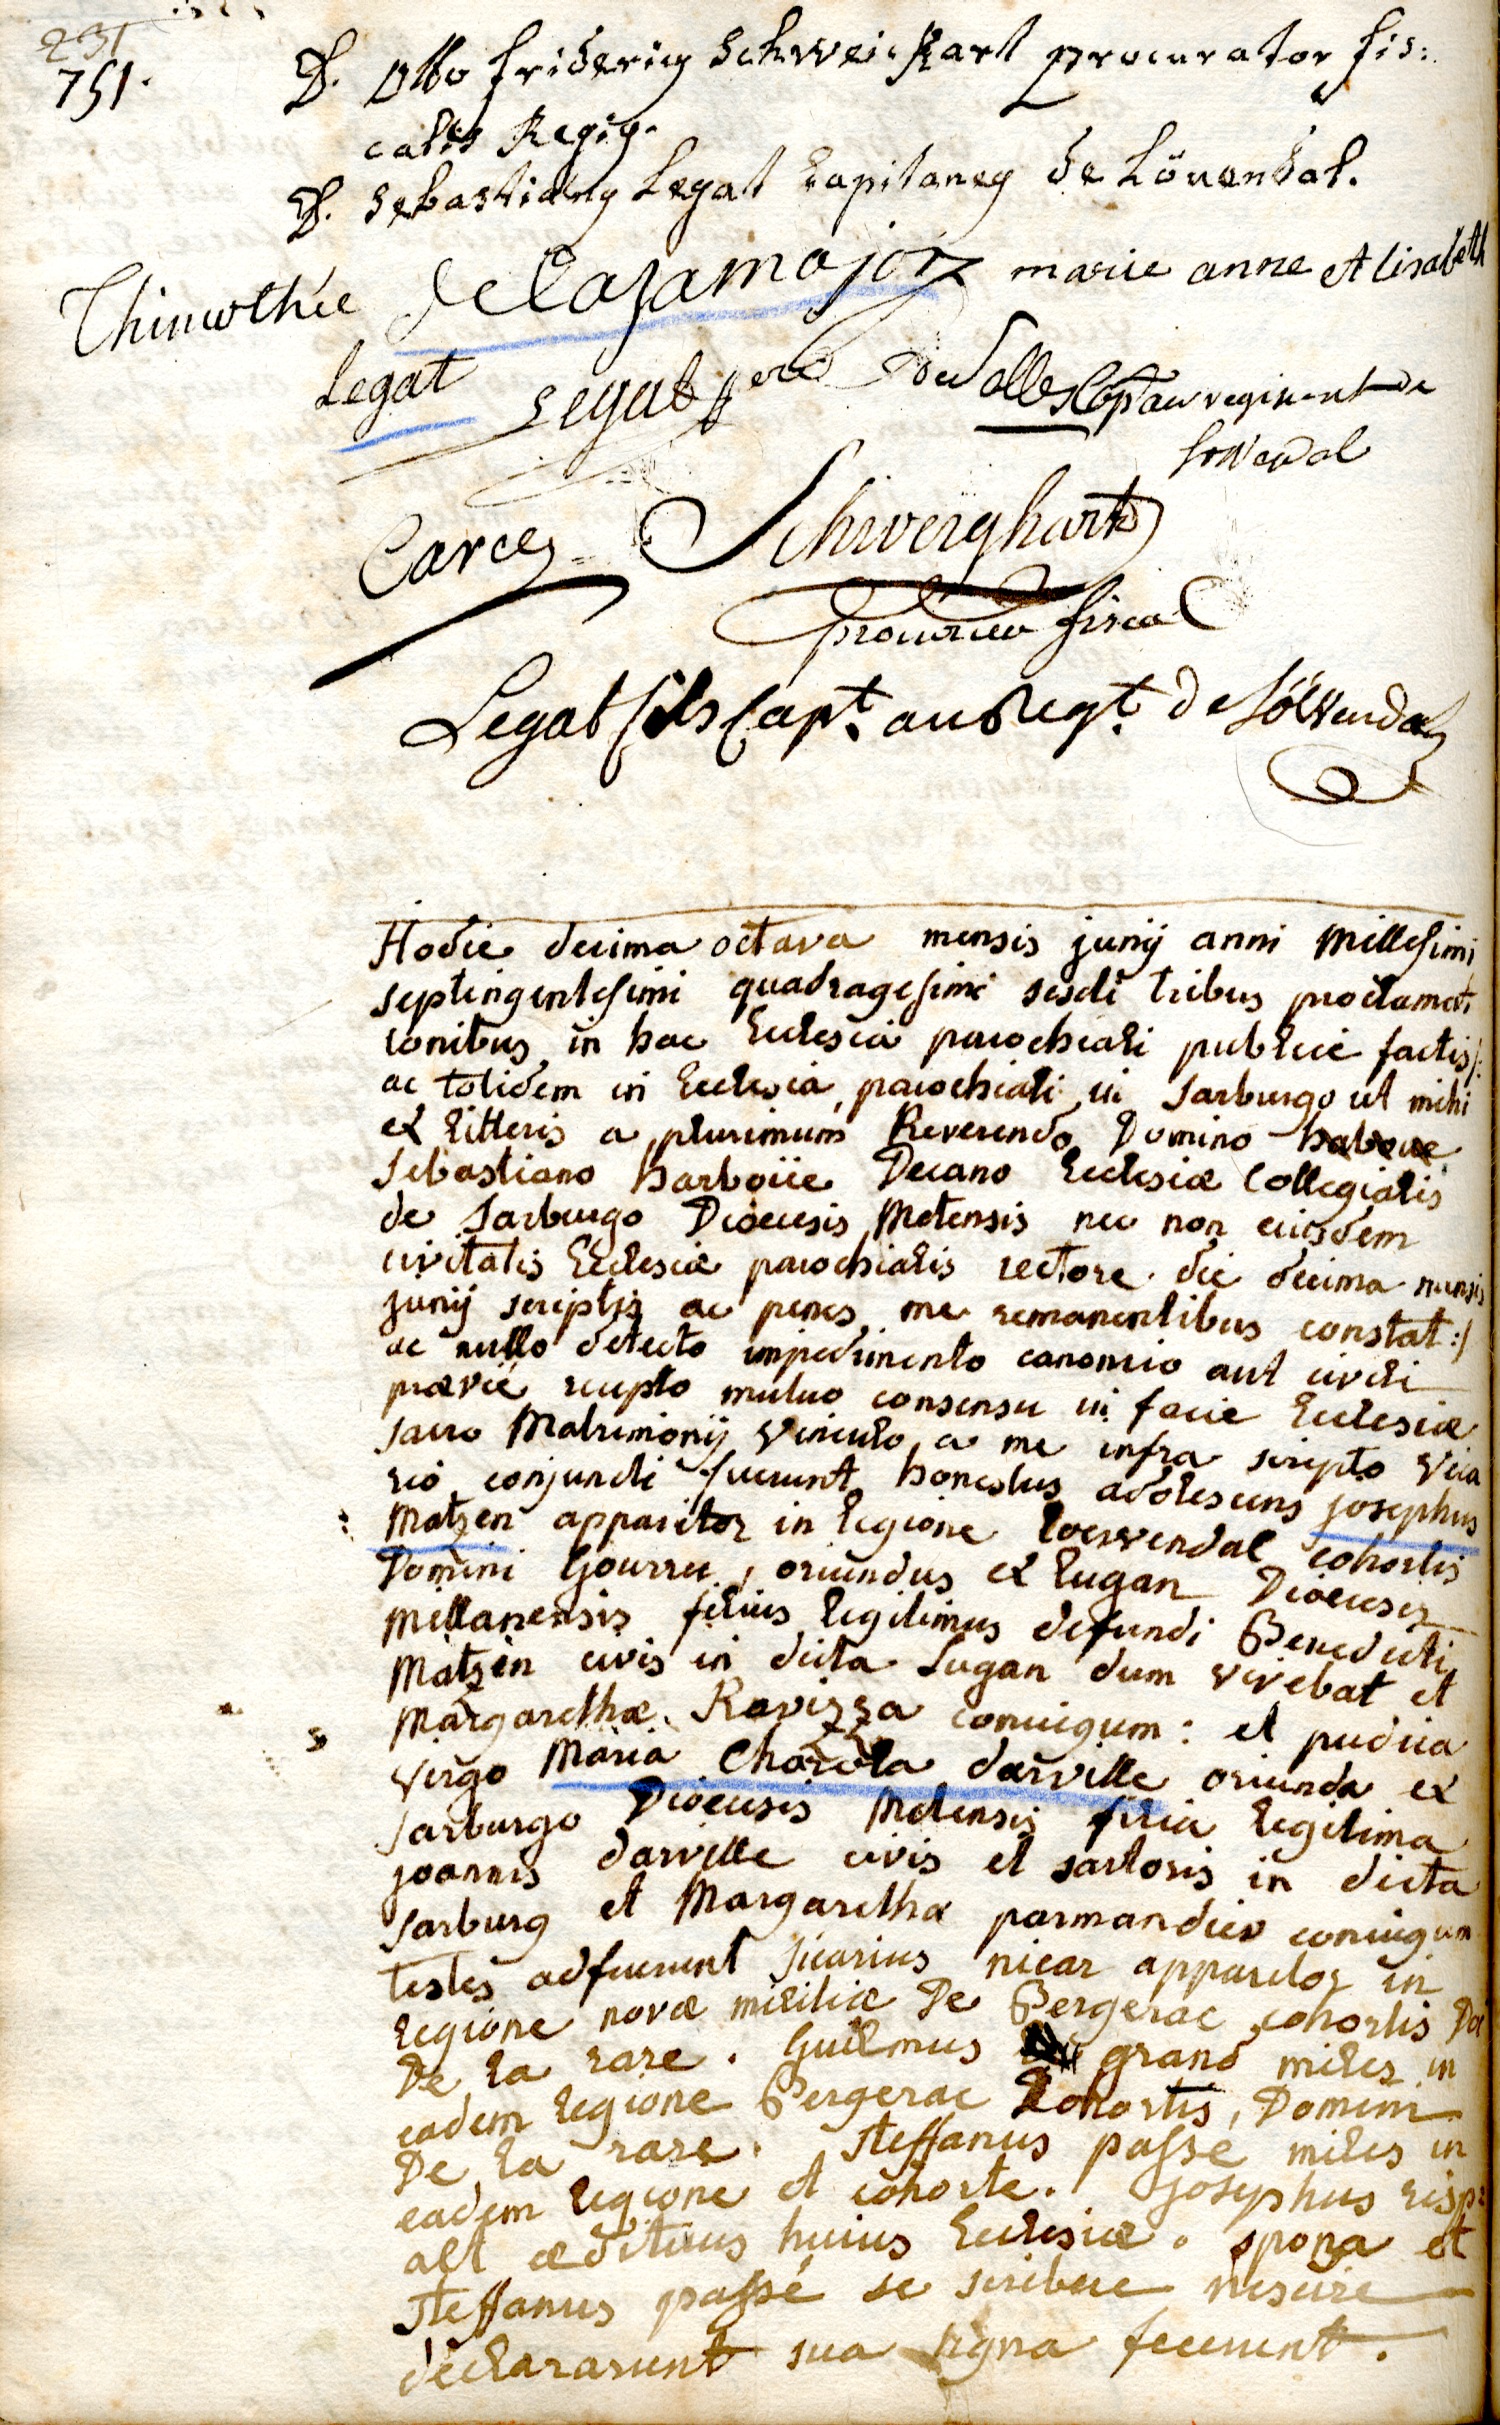 231
751.
D. Otto fridericus Schweickart procurator fis:
calis Regius.
D. Sebastianus Legat Capitaneus de Lövendal.
Thimothée Delazamajor marie anne elisabeth
Legat Legat pere Capt au regiment de
Lowendal
Carcey Schweighart
procureur fiscal
Legat fils Capt. au Regt. de Löwendal
Hodie decima octava mensis junij anni Millesimi
septingentesimi quadragesimi sexti tribus proclamati
ionibus in hac Ecclesia parochiali publice factis /:
ac totidem in Ecclesia parochiali in Sarburgo ut mihi
ex litteris a plurimum Reverendo Domino
Sebastiano harboüe Decano Ecclesiæ Collegialis
de Sarburgo Dioecesis Metensis nec non eiusdem
civitatis Ecclesiæ parochialis rectore die decima mensis
junij scriptis ac penes me remanentibus constat :/
ac nullo detecto impedimento canonico aut civili
prævie recepto mutuo consensu in facie Ecclesiæ
sacro Matrimonij vinculo a me infra scripto vica
rio conjuncti fuerunt honestus adolescens josephus
Matzen apparitor in legione Loewendal cohortis
Domini Gourru, oriundus ex Lugan Dioecesis
Mellanensis filius legitimus defuncti Benedicti
Matzen civis in dicta Lugan dum vivebat et
Margarethæ Ravizza coniugum: et pudica
virgo Maria Charola darville oriunda ex
Sarburgo Dioecesis Metensis filia legitima
joannis darville civis et sartoris in dicta
Sarburg et Margarethæ parmandier coniugum
testes adfuerunt Sicarius nicar apparitor in
legione novæ militiæ De Bergerac cohortis Dni
De la rare. Guilmus grand miles in
eadem legione Bergerac Cohortis, Domini
De la rare. Steffanus passe miles in
eadem legione et cohorte. josephus risp:
alt ædituus huius Ecclesiæ. sponsa et
Steffanus passé se scribere nescire
declararunt sua signa fecerunt.